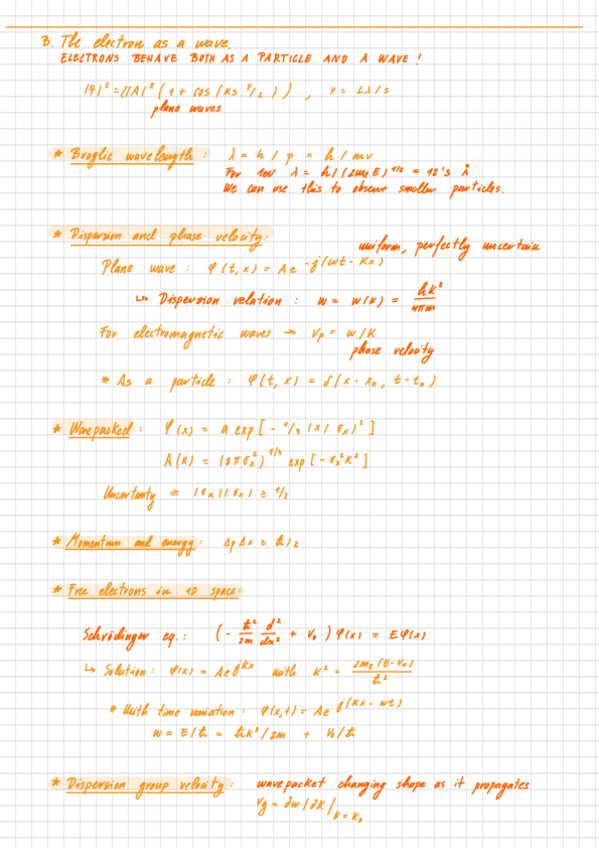 3. The electron as a wave.
ELECTRONS BEHAVE BOTH AS A PARTICLE AND A WAVE!
|ψ|² = 4|A|² (1 + cos(ks y/L)) , y = Lλ/s
plane waves
* Broglie wavelength: λ = h / p = h / mv
For 1eV λ = h/(2meE)^1/2 = 12'3 Å
We can use this to observe smaller particles.
* Dispersion and phase velocity:
uniform, perfectly uncertain
Plane wave: φ(t,x) = Ae^-j(wt - kx)
↳ Dispersion relation: w = w(k) = hk²/4πm
For electromagnetic waves → Vp = w/k
phase velocity
* As a particle: φ(t,x) = δ(x - x0, t - t0)
* Wavepacked: φ(x) = a exp[- 1/4 (x/σx)²]
A(k) = (8πσx²)^1/4 exp[- σx²k²]
Uncertainty ≡ |σk||σx| ≥ 1/2
* Momentum and energy: Δp Δx ≥ ħ/2
* Free electrons in 1D space:
Schrödinger eq.: (- ħ²/2m d²/dx² + V0) φ(x) = Eφ(x)
↳ Solution: φ(x) = Ae^jkx with k² = 2me(E-V0)/ħ²
* With time variation: φ(x,t) = Ae^j(kx - wt)
w = E/ħ = ħk²/2m + V0/ħ
* Dispersion group velocity: wavepacket changing shape as it propagates
Vg = ∂w/∂k|k=k0